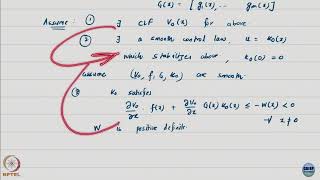 G(x) = [ g₁(x), ⋯ gₘ(x) ]
Assume : ① ∃ CLF V₀(x) for above.
② ∃ a smooth control law, u = k₀(x)
which stabilizes above, k₀(0) = 0
assume (V₀, f, G, k₀) are smooth.
V₀ satisfies
∂V₀/∂x · f(x) + ∂V₀/∂x G(x) k₀(x) ≤ -W(x) < 0
∀ x ≠ 0
W is positive definite
NPTEL